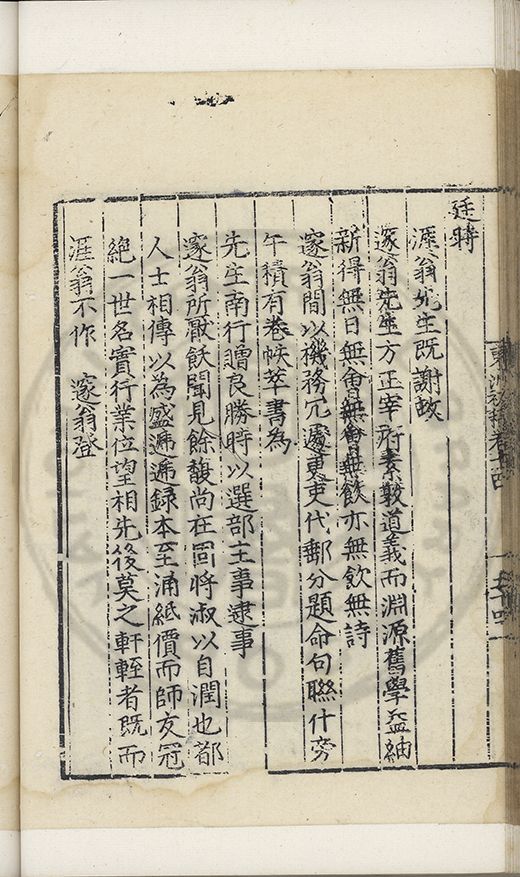 東洲初稿卷十四
廷時
涯翁先生既謝政
邃翁先生方正宰衡素敦道義而淵源舊學益紬
新得無日無會無會無飲亦無飲無詩
邃翁間以機務冗遽東吏代郵分題命句聯什旁
午積有卷帙萃書為
先生南行贈良勝時以選部主事逮事
邃翁所厭飫聞見餘馥尚在固將淑以自潤也都
人士相傳以為盛遞遞録本至涌紙價而師友冠
絕一世名實行業位望相先後莫之軒輊者既而
涯翁不作　邃翁登